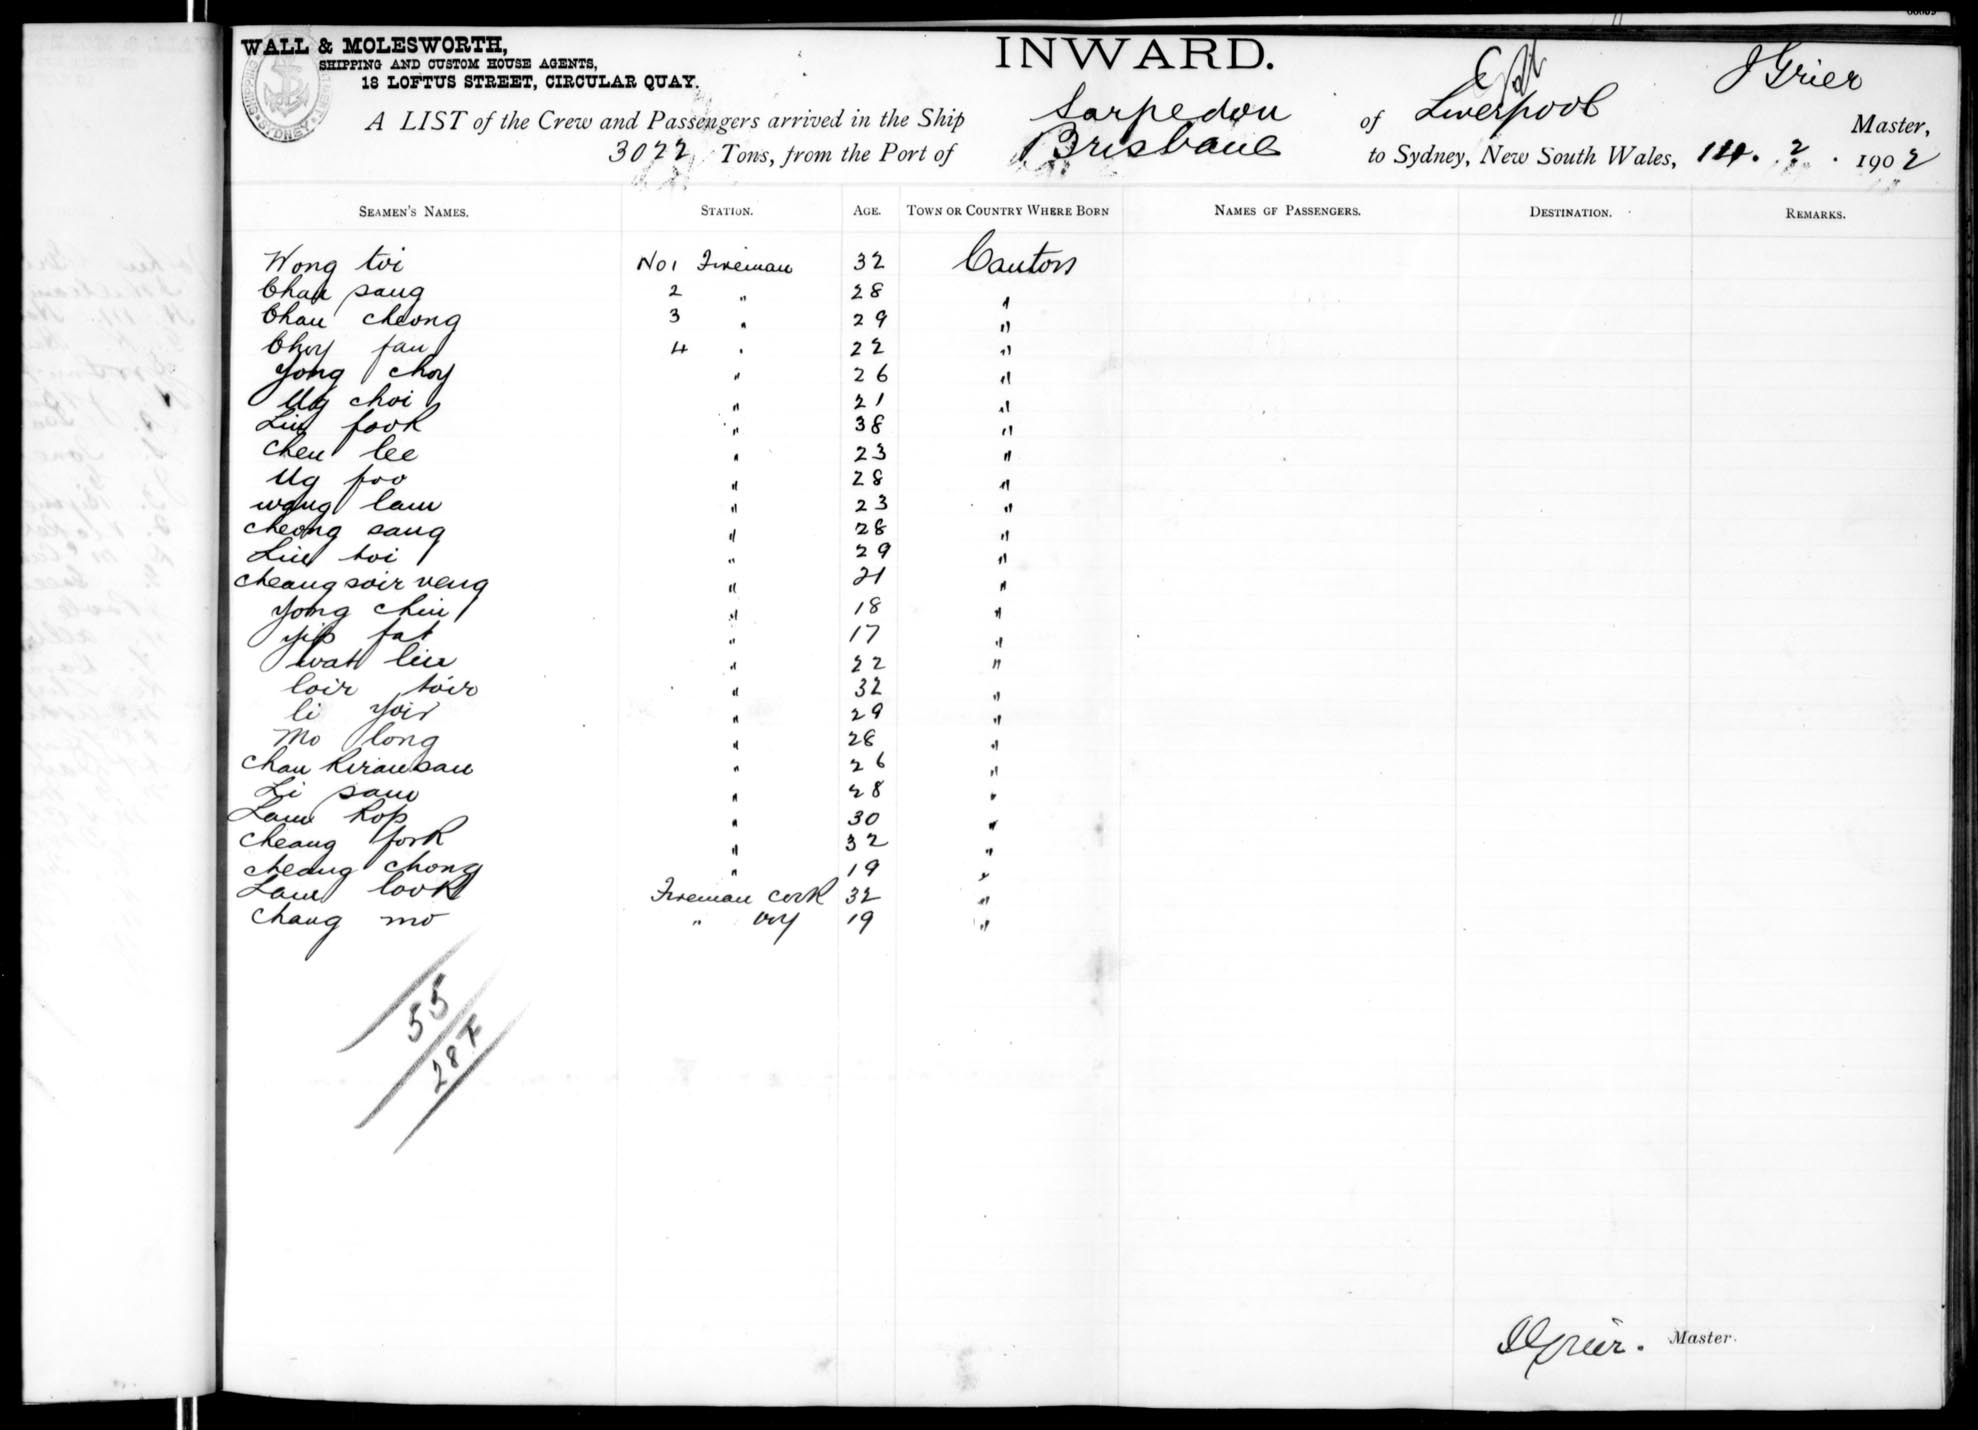 WALL & MOLESWORTH,
SHIPPING AND CUSTOM HOUSE AGENTS,
18 LOFTUS STREET, CIRCULAR QUAY.
INWARD.
J Grier
A LIST of the Crew and Passengers arrived in the Ship Sarpedon of Liverpool Master,
3022 Tons, from the Port of Brisbane to Sydney, New South Wales, 14. 2. 1902
SEAMEN'S NAMES. STATION. AGE. TOWN OR COUNTRY WHERE BORN NAMES OF PASSENGERS. DESTINATION. REMARKS.
Wong toi No 1 Fireman 32 Canton
Chan sang 2 " 28 "
Chan cheong 3 " 29 "
Choy fan 4 " 22 "
Yong choy " 26 "
Ng choi " 21 "
Liu fook " 38 "
Chen lee " 23 "
Ng foo " 28 "
wong lam " 23 "
cheong sang " 28 "
Liu toi " 29 "
cheang soir veng " 21 "
Yong chiu " 18 "
Yip fat " 17 "
wat liu " 22 "
loir toir " 32 "
li yoir " 29 "
Mo long " 28 "
Chan " 26 "
Li sam " 28 "
Lam kop " 30 "
cheang fork " 32 "
cheang chong " 19 "
Lam look Fireman cook 32 "
chang mo " boy 19 "
55
28 F
J Grier. Master.